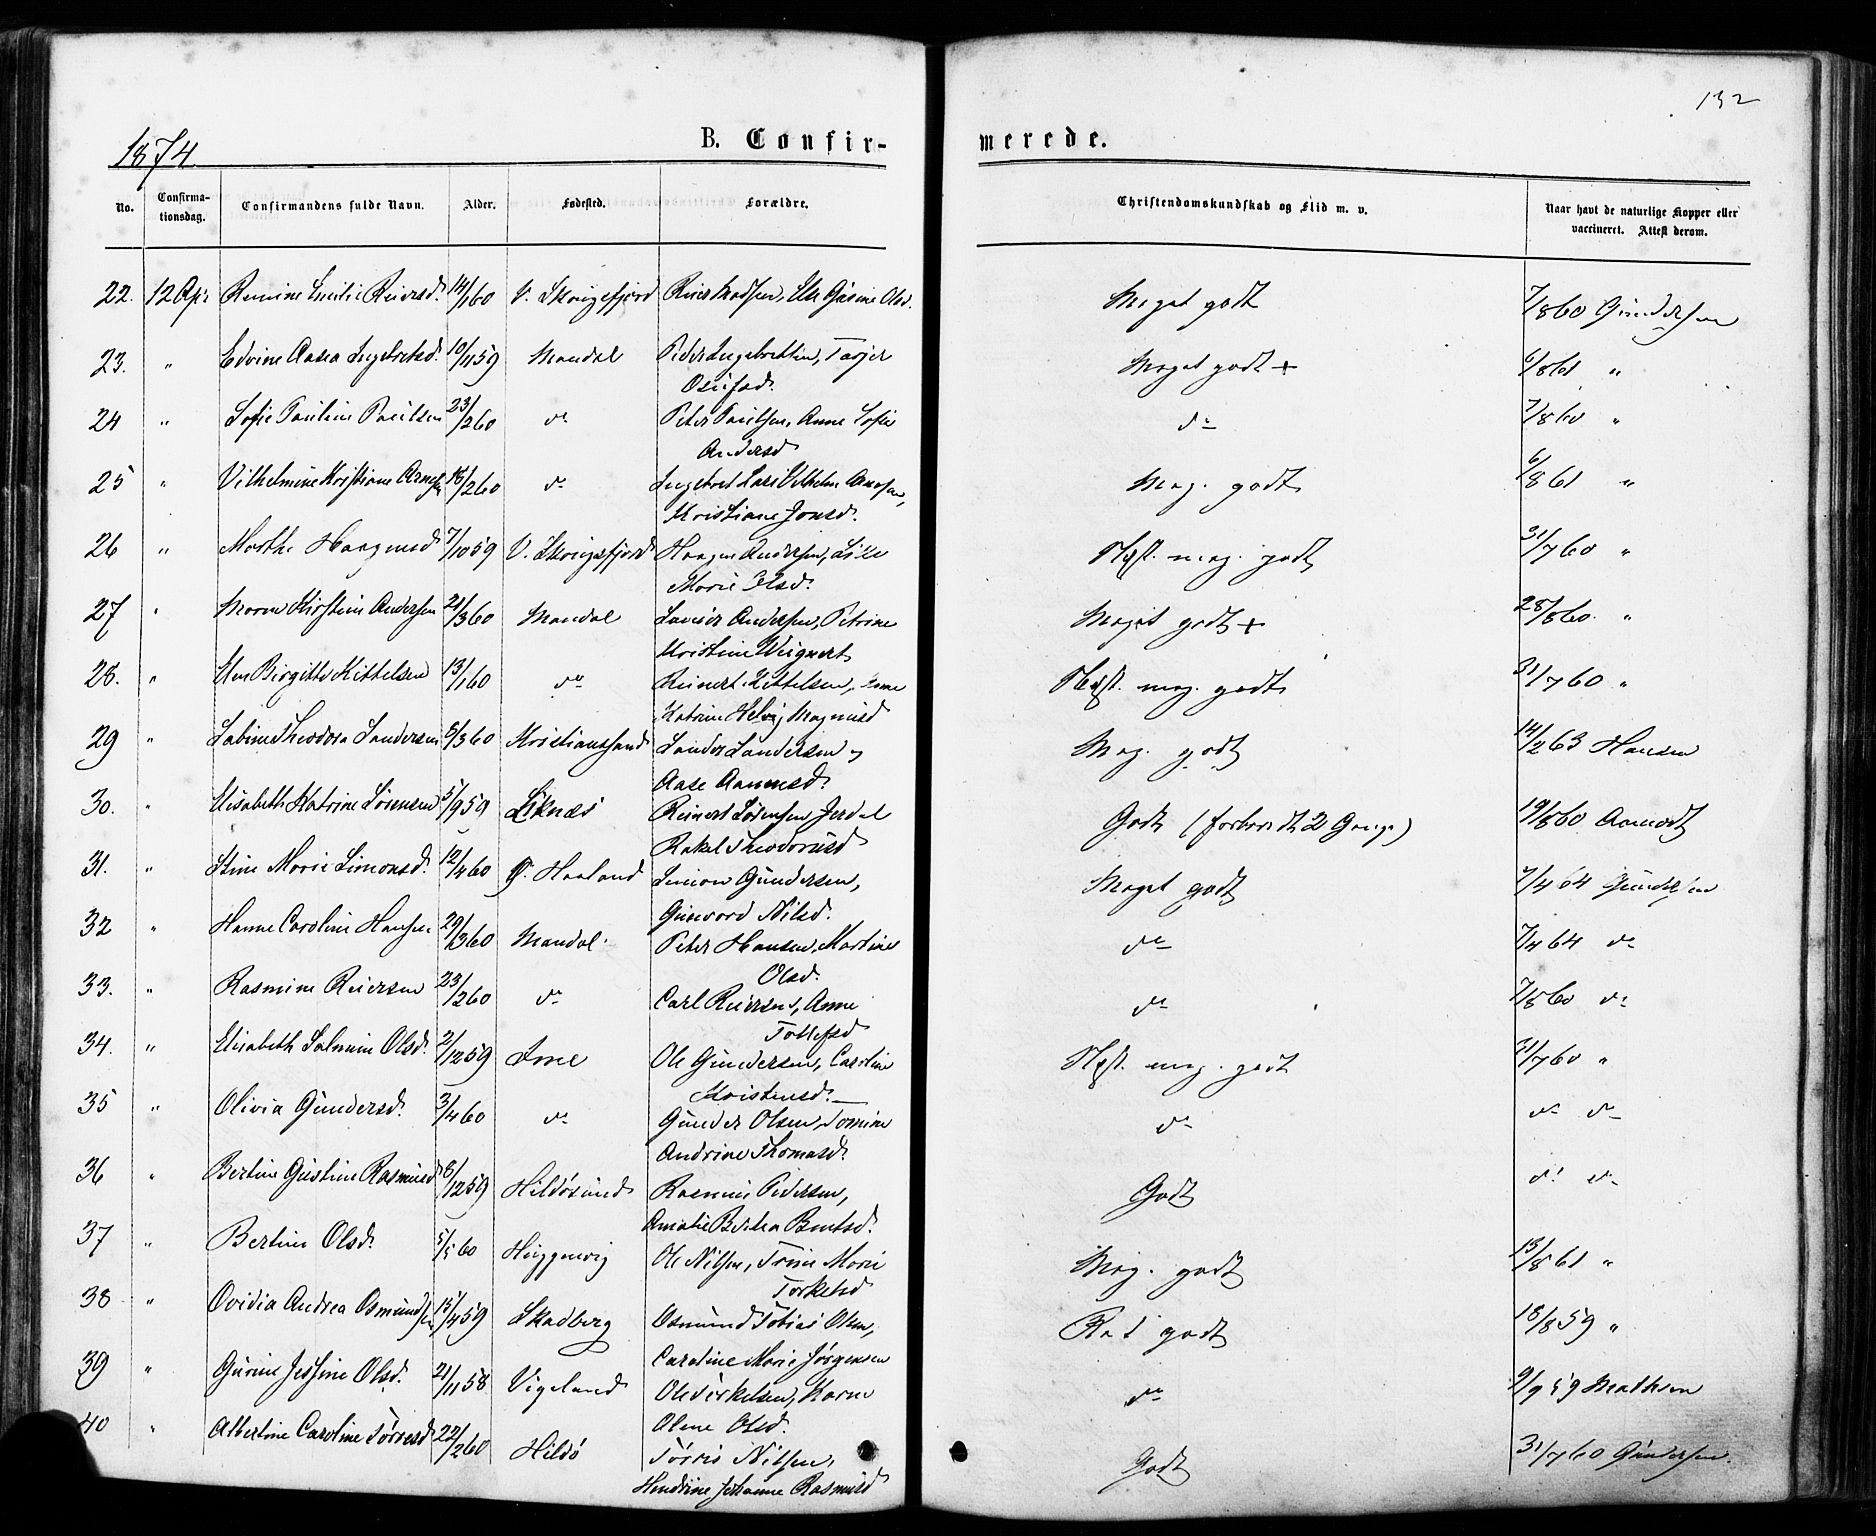 132
1874 B. Confirmerede.
No. Confirmationsdag. Confirmandens fulde Navn. Alder. Fødested. Forældre. Christendomskundskab og Flid m. v. Naar havt de naturlige Kopper eller vaccineret. Attest derom.
22. 12 Apr Reiersd. 14/1 60 V. Skougsfjord Olsd. Meget godt 7/8 60 Gundersen
23. " Edvine Aasea Ingebretsd. 10/11 59 Mandal Peder Ingebretsen, Tarjer Meget godt + 6/8 61 "
Osufsd.
24 " Sofie Pauline Paulsen 23/2 60 do Peter Paulsen, Anne Sofie do 7/8 60 "
Andersd
25 " Vilhelmine Kristiane Arnesen 16/2 60 do Ingebret Lars Vilhelm Arnesen, Meg. godt 6/8 61 "
Kristiane Jonsd.
26 " Marthe Haagensd 7/10 59 V. Skougsfjord Haagen Andersen, Sille Næst. meg. godt 31/7 60 "
Marie Olsd.
27 " Maren Kirstine Andersen 21/3 60 Mandal Andersen, Petrine Meget godt + 28/8 60. "
Kristine Weignert
28. " Birgitte Kittelsen 13/1 60 do Reinert Kittelsen, Anne Næst. meg. godt 31/7 60 "
Katrine Helvig Magnusd
29 " Sabine Theodora Sandersen 6/3 60 Kristianssand Sander Sandersen, Meg. godt 14/2 63 Hansen
Aase Aanensd.
30. " Elisabeth Katrine Sørensen 5/9 59 Liknæs Reinert Sørensen Jerdal Godt (forberedt 2 Gange) 19/8 60 Aamodt
Rakel Theodorusd
31. " Stine Marie Simonsd. 12/4 60 Ø. Haaland Simon Gundersen, Meget godt 7/4 64 Gundersen
Gunvord Nilsd.
32 " Hanne Caroline Hansen 29/3 60 Mandal. Peter Hansen, Martine do 7/4 64 do
Olsd.
33. " Rasmine Reiersen 23/2 60 do Carl Reiersen, Anne do 7/8 60 do
Tollefsd
34. " Elisabeth Salmine Olsd. 2/12 59 Ime Ole Gundersen, Caroline Næst. meg. godt 31/7 60 "
Kristensd.
35 " Olivia Gundersd. 3/4 60 do Gunder Olsen, Tomine do do do
Andrine Thomasd.
36 " Bertine Gustine Rasmusd 8/12 59 Hildøsund Rasmus Pedersen, Godt do do
Amalie Bertea Berntsd.
37 " Bertine Olsd. 5/5 60 Huggenvig Ole Nilsen, Trine Marie Meg. godt 13/8 61 "
Torkelsd
38 " Ovidia Andrea Osmundsen 15/4 59 Skadberg Osmund Tobias Olsen, Ret godt 18/8 59 "
Caroline Marie Jørgensen
39 " Gurine Jessine Olsd. 21/11 58 Vigeland Ole Terkelsen, Karen do 9/9 59
Olene Olsd.
40 " Albertine Caroline Tørresd 22/2 60 Hildø Tørris Nilsen, Godt 31/7 60 Gundersen.
Hendrine Johanne Rasmusd